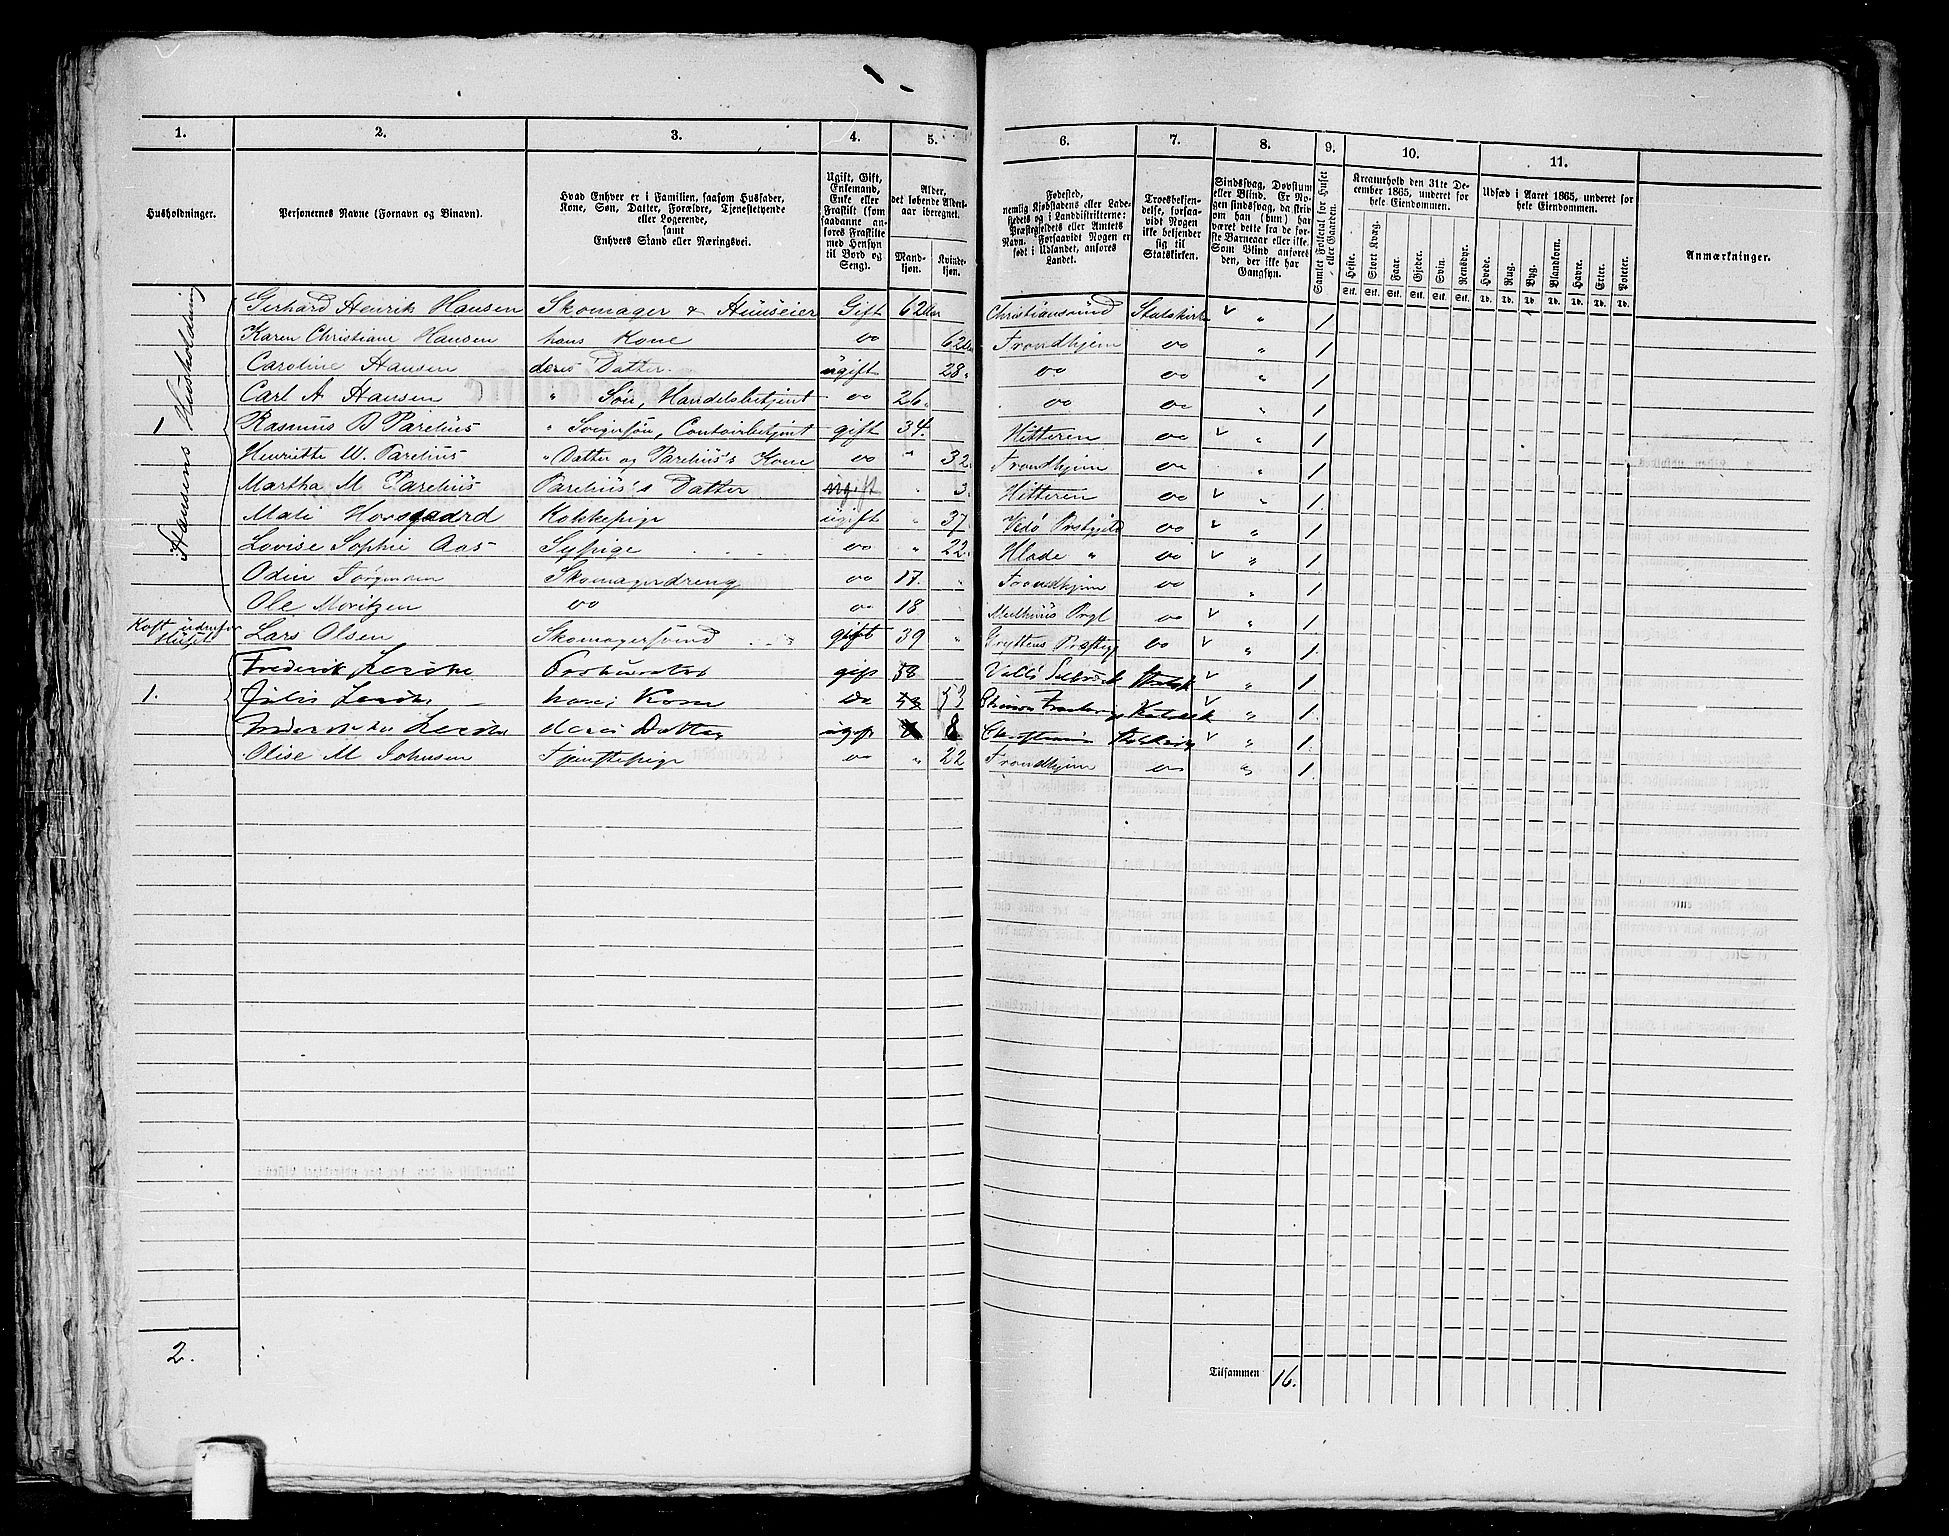 1. 2. 3. 4. 5. 6. 7. 8. 9. 10. 11.
Husholdninger.
Personernes Navne (Fornavn og Binavn).
Hvad Enhver er i Familien, saasom Husfader,
Kone, Søn, Datter, Forældre, Tjenestetyende
eller Logerende,
samt
Enhvers Stand eller Næringsvei.
Ugift, Gift,
Enkemand,
Enke eller
Fraskilt (som
saadanne an-
føres Fraskilte
med Hensyn
til Bord og
Seng).
Alder,
det løbende Alders-
aar iberegnet.
Mand-
kjøn.
Kvinde-
kjøn.
Fødested,
nemlig Kjøbstadens eller Lade-
stedets og i Landdistrikterne:
Præstegjeldets eller Amtets
Navn. Forsaavidt Nogen er
født i Udlandet, anføres
Landet.
Troesbekjen-
delse, forsaa-
vidt Nogen
ikke bekjender
sig til
Statskirken.
Sindssvag, Døvstum
eller Blind. Er No-
gen sindssvag, da skri-
ves om han (hun) har
været dette fra de før-
ste Barneaar eller ikke.
Som Blind anføres
den, der ikke har
Gangsyn.
Samlet Folketal for Huset
eller Gaarden.
Kreaturhold den 31te De-
cember 1865, underet for
hele Eiendommen.
Heste. Stort Kvæg. Faar. Gjeder. Svin. Rensdyr.
Stk. Stk. Stk. Stk. Stk. Stk.
Udsæd i Aaret 1865, underet for
hele Eiendommen.
Hvede. Rug. Byg. Blandkorn. Havre. Erter. Poteter.
Td. Td. Td. Td. Td. Td. Td.
Anmærkninger.
Hansens Husholdning
Gerhard Henrik Hansen Skomager & Huuseier Gift 62 Christiansund Statskirk " 1.
Karen Christiane Hansen hans Kone do 62 Trondhjem do " 1
Caroline Hansen deres Datter. ugift 28 do do " 1.
Carl A Hansen " Søn, Handelsbetjent do 26. do do " 1.
1 Rasmus B Parelius " Svigersøn, Contoirbetjent gift 34. Hitteren do " 1.
Henriette W. Parelius " Datter og Parelius's Kone do " 32. Trondhjem do " 1.
Martha M Parelius Parelius's Datter ugift 3. Hitteren do " 1.
Mali Horsgaard Kokkepige ugift " 37. Vedø Prstgjeld do " 1.
Lovise Sophie Aas Sypige do " 22. Hlade " do " 1.
Odin Jørgensen Skomagerdreng do 17. " Trondhjem do " 1.
Ole Moritzen do do 18 Meelhuus Prgl do " 1.
Kost udenfor Huset Lars Olsen Skomagersvend gift 39 " Gryttens Præstegj do " 1.
Frederik gift 58 " 1.
1. hans Kone do 53 " 1.
deres Datter ugift 8 " 1.
Olise M Johnsen Tjenstepige do " 22 Trondhjem do " 1.
2.
Tilsammen 16.